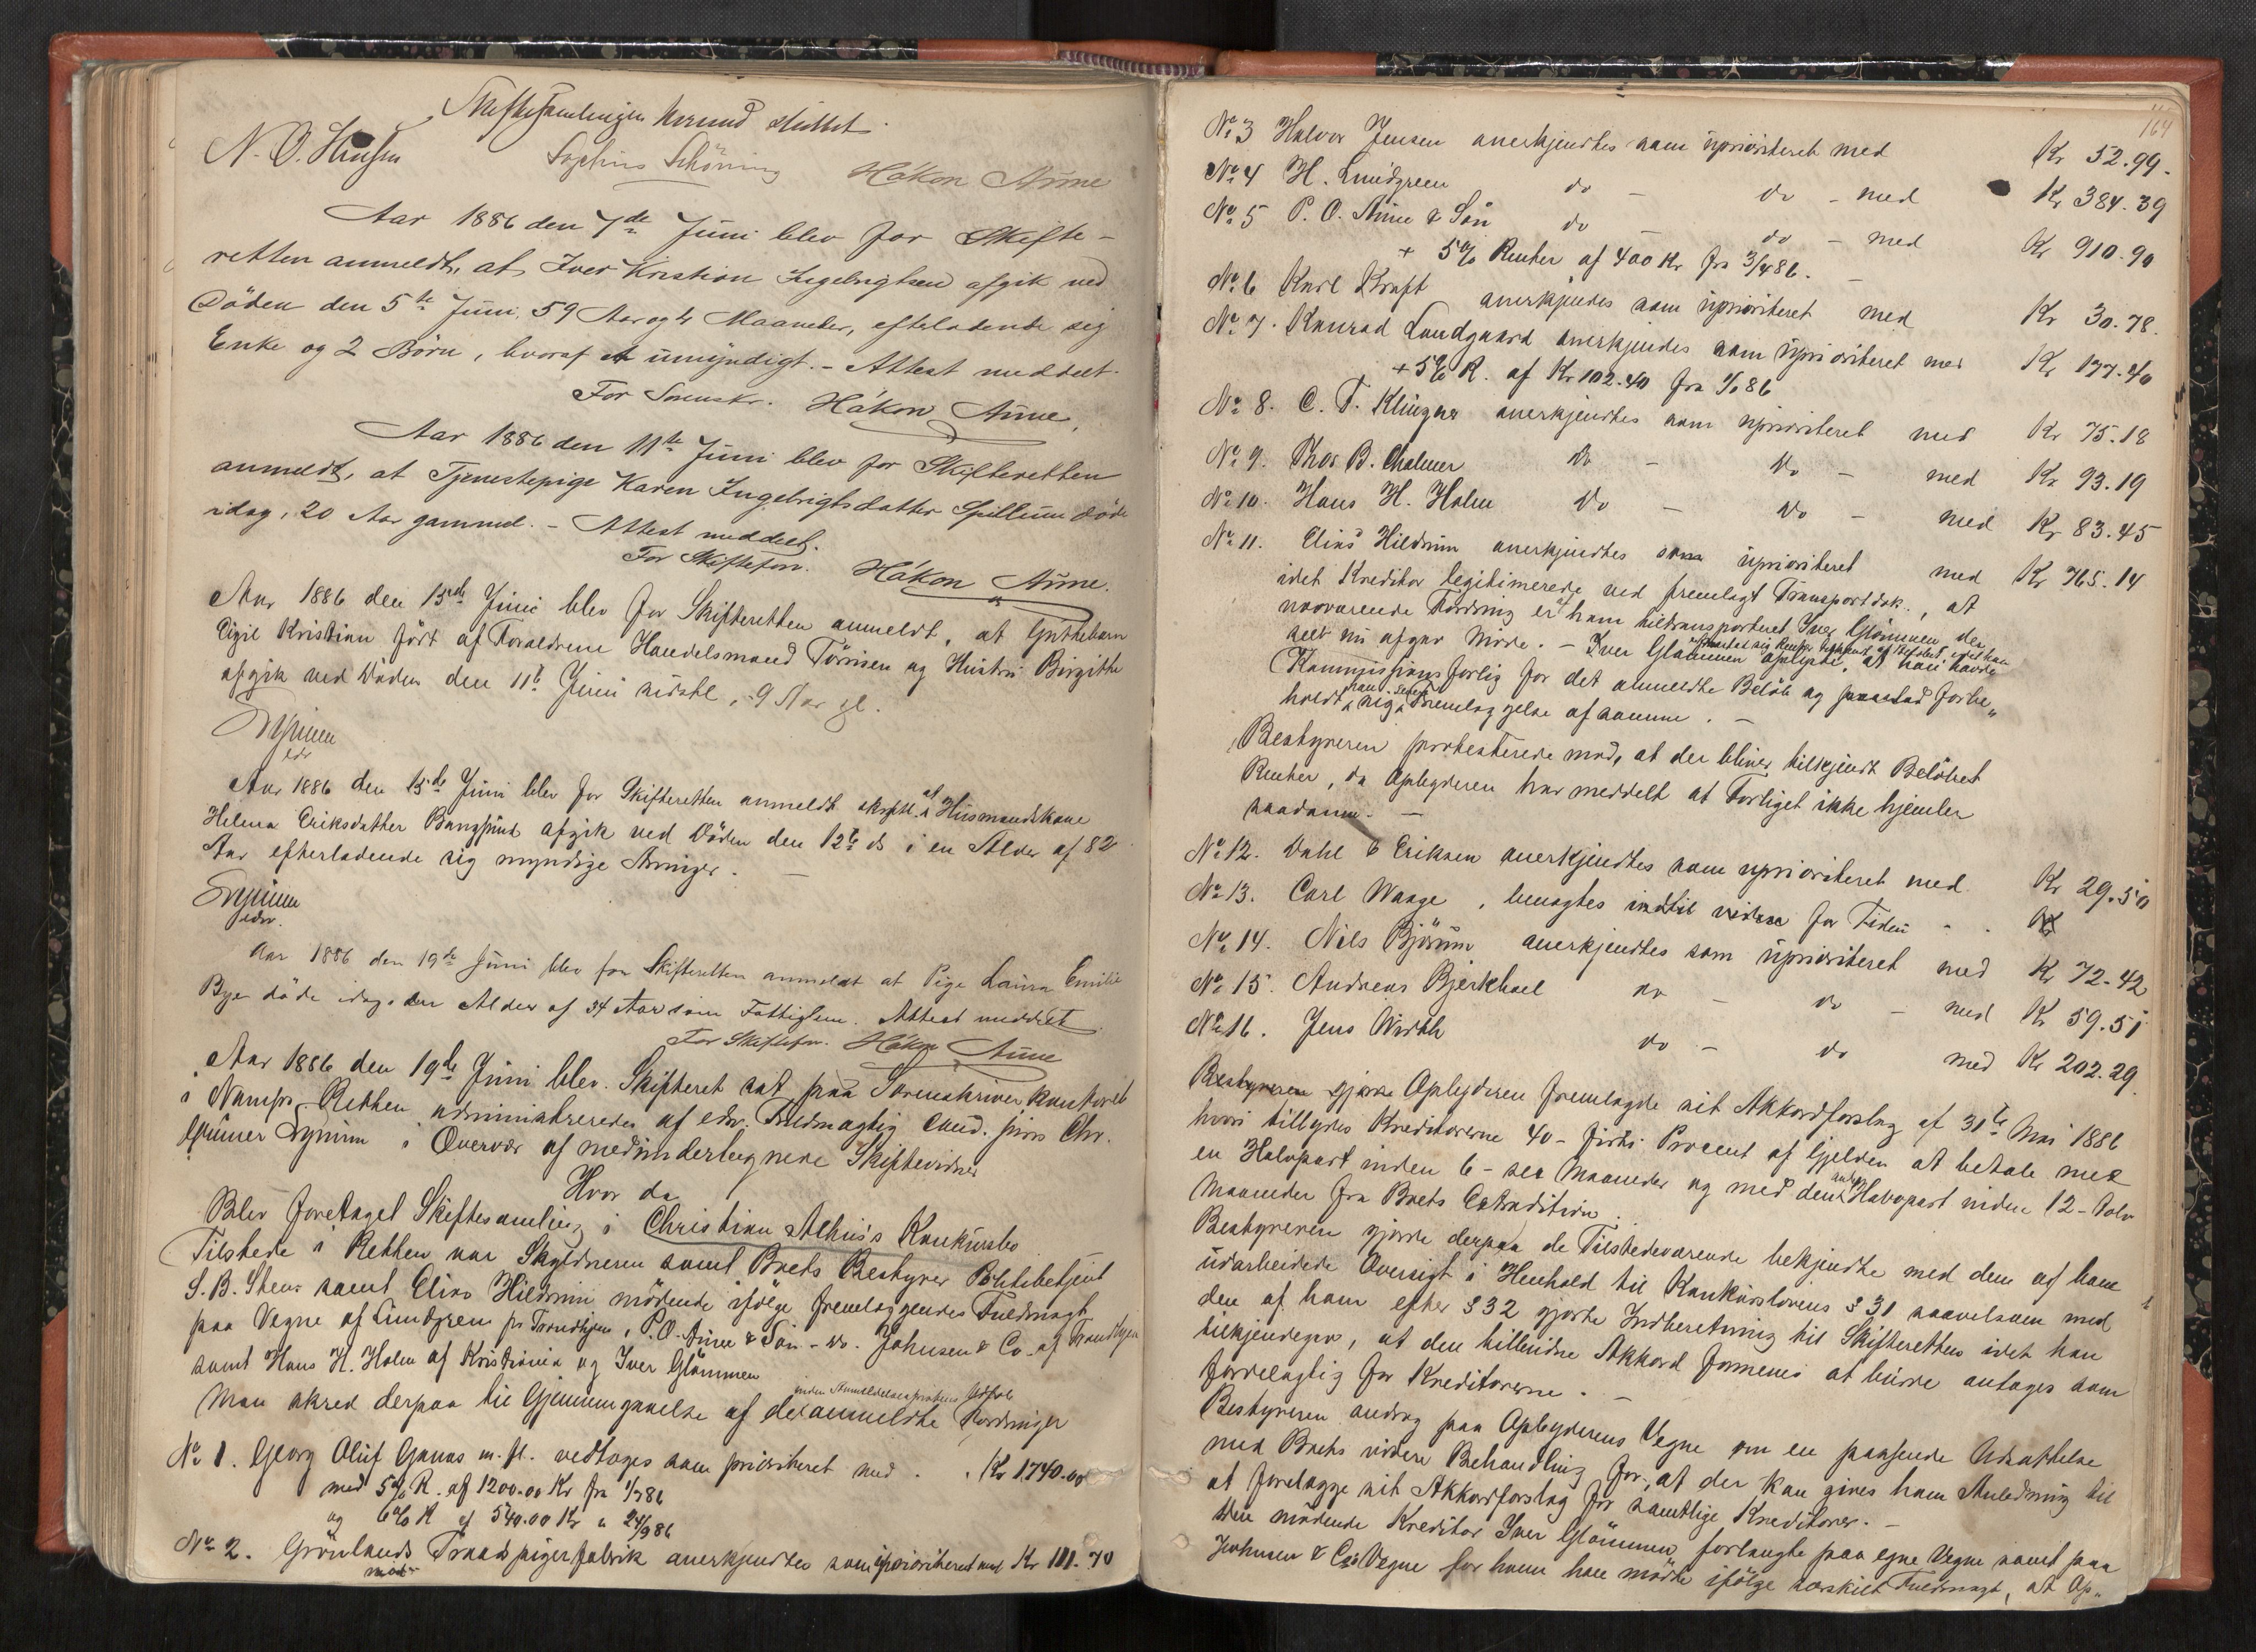 Skiftesamlingen hermed sluttet.
N. O. Hansen Sophus Schöning Håkon Aune
Aar 1886 den 7de Juni blev for Skifte-
retten anmeldt, at Iver Kristian Ingebrigtsen afgik ved
Döden den 5te Juni, 59 Aar og 4 Maaneder, efterladende sig
Enke og 2 Börn, hvoraf et umyndigt. - Attest meddelt.
For Sorenskr. Håkon Aune.
Aar 1886 den 11te Juni blev for Skifteretten
anmeldt, at Tjenestepige Karen Ingebrigtsdatter Spillum döde
idag, 20 Aar gammel. - Attest meddelt.
For Skifteforv. Håkon Aune.
Aar 1886 den 15de Juni blev for Skifteretten anmeldt, at Guttebarn
Eigil Kristian född af Forældrene Handelsmand Törrisen og Hustru Birgitte
afgik ved Döden den 11te Juni sidstl., 9 Aar gl.
Aar 1886 den 15de Juni blev for Skifteretten anmeldt skriftl. at Husmandskone
Helena Eriksdatter Bangsund afgik ved Döden den 12te ds i en Alder af 82
Aar efterladende sig myndige Arvinger. -
Aar 1886 den 19de Juni blev for Skifteretten anmeldt at Pige Laura Emilie
Bye döde idag i en Alder af 34 Aar som Fattiglem. Attest meddelt.
For Skifteforv. Håkon Aune
Aar 1886 den 19de Juni blev Skifteret sat paa Sorenskriverkontoret
i Namsos. Retten administreredes af edsv. Fuldmægtig cand. juris Chr.
i Overvær af medundertegnede Skiftevidner
Hvor da
Blev foretaget Skiftesamling i Christian Athus's Konkursbo
Tilstede i Retten var Skyldneren samt Boets Bestyrer Politibetjent
S. B. Steen samt Elias Hildrum mödende ifölge fremlæggendes Fuldmagt
paa Vegne af Lundgren pr Trondhjem, P. O. Aune & Sön - do. Johnsen & Co. af Trondhjem
samt Hans H. Holm af Kristiania og Iver Glömmen
Man skred derpaa til Gjennemgaaelse af de inden Anmeldelsesfristens Udløb anmeldte Fordringer
No 1. Georg Oluf Ganas m. fl. vedtoges som prioriteret med . . Kr 1,740.00
med 5% R. af 1200.00 Kr fra 1/7 86
og 6% R af 540.00 Kr " 24/3 86
No 2. Grönlands Traadspigerfabrik anerkjendtes som uprioriteret med Kr 111.70
164
No 3 Halvor Jensen anerkjendtes som uprioriteret med Kr 52.99.
No 4 H. Lundgreen do - do - med Kr 384.39
No 5 P. O. Aune & Sön do - do - med Kr 910.90
+ 5% Renter af 400 Kr fra 3/4 86. -
No 6 Karl Kraft anerkjendes som uprioriteret med Kr 30.78.
No 7. Konrad Lundgaard anerkjendes som uprioriteret med Kr 177.40
+ 5% R. af Kr 102.40 fra 1/1 86
No 8. C. F. Klingner anerkjendtes som uprioriteret med Kr 75.18
No 9. Thos B. Chalmer do - do - med Kr 93.19
No 10. Hans H. Holm do - do - med Kr 83.45
No 11. Elias Hildrum anerkjendtes som uprioriteret med Kr 765.14
idet Kreditor legitimerede ved fremlagt Transportdok., at
nærværende Fordring er ham tiltransporteret Iver Glömmen, der
selv nu afgav Möde. - Iver Glömmen oplyste, at han havde
Kommissionsforlig for det anmeldte Belöb og forbe"
holdt han sig senere Fremlæggelse af samme. -
Bestyreren protesterede mod, at der bliver tilkjendt Belöbet
Renter, da Opbyderen har meddelt at Forliget ikke hjemler
saadanne. -
No 12. Dahl & Eriksen anerkjendtes som uprioriteret med Kr 29.50
No 13. Carl Waage, benegtes indtil videre for Tiden - . Kr
No 14. Nils Björum anerkjendtes som uprioriteret med Kr 72.42
No 15. Andreas Bjerkhoel do - do - med Kr 59.51
No 16. Jens Wirth do - do med Kr 202.29.
Bestyreren gjorde Opbyderen fremlagde sit Akkordforslag af 31te Mai 1886
hvori tilbydes Kreditorerne 40 - förti Procent af Gjelden at betale med
en Halvpart inden 6 - sex Maaneder og med den anden Halvpart inden 12 - tolv
Maaneder fra Boets Extradition.
Bestyreren gjorde derpaa de Tilstedeværende bekjendte med den af ham
udarbeidede Oversigt i Henhold til Konkurslovens § 31 saavelsom med
den af ham efter § 32 gjorte Indberetning til Skifteretten idet han
tilkjendegav, at den tilbudne Akkord formenes at burde antages som
fordelagtig for Kreditorerne. -
Bestyreren androg paa Opbyderens Vegne om en passende Udsættelse
med Boets videre Behandling for, at der kan gives ham Anledning til
at forelægge sit Akkordforslag for samtlige Kreditorer. -
Den mödende Kreditor Iver Glömmen forlangte paa egne Vegne samt paa
Johnsen & Co's Vegne for hvem han mödte ifölge særskilt Fuldmagt, at Op"